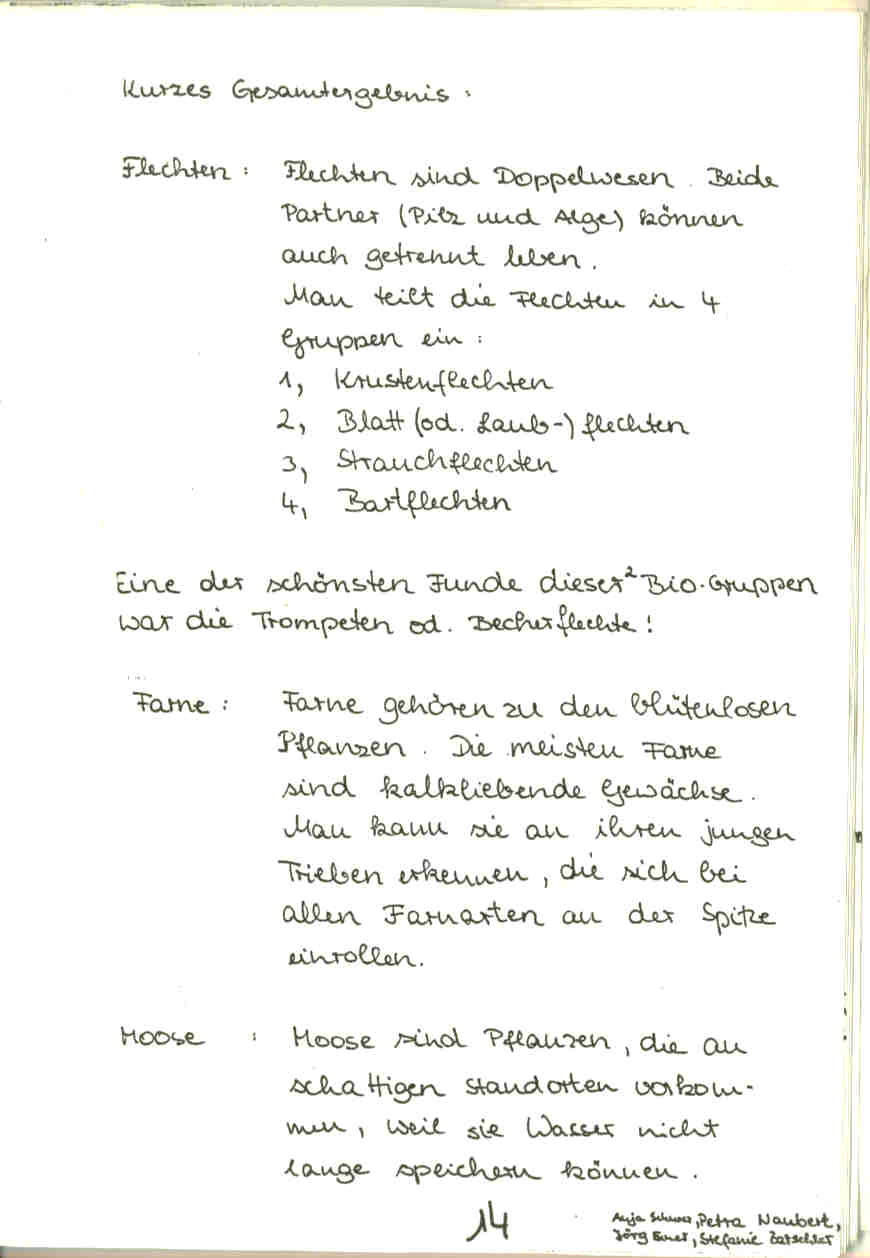 Kurzes Gesamtergebnis :
Flechten : Flechten sind Doppelwesen. Beide
Partner (Pilz und Alge) können
auch getrennt leben.
Man teilt die Flechten in 4
Gruppen ein :
1, Krustenflechten
2, Blatt (od. Laub-) flechten
3, Strauchflechten
4, Bartflechten
Eine der schönsten Funde dieser 2 Bio-Gruppen
war die Trompeten od. Becherflechte!
Farne : Farne gehören zu den blütenlosen
Pflanzen. Die meisten Farne
sind kalkliebende Gewächse.
Man kann sie an ihren jungen
Trieben erkennen, die sich bei
allen Farnarten an der Spitze
einrollen.
Moose : Moose sind Pflanzen, die an
schattigen Standorten vorkom-
men, weil sie Wasser nicht
lange speichern können.
14
Anja, Petra Naubert,
Jörg, Stefanie